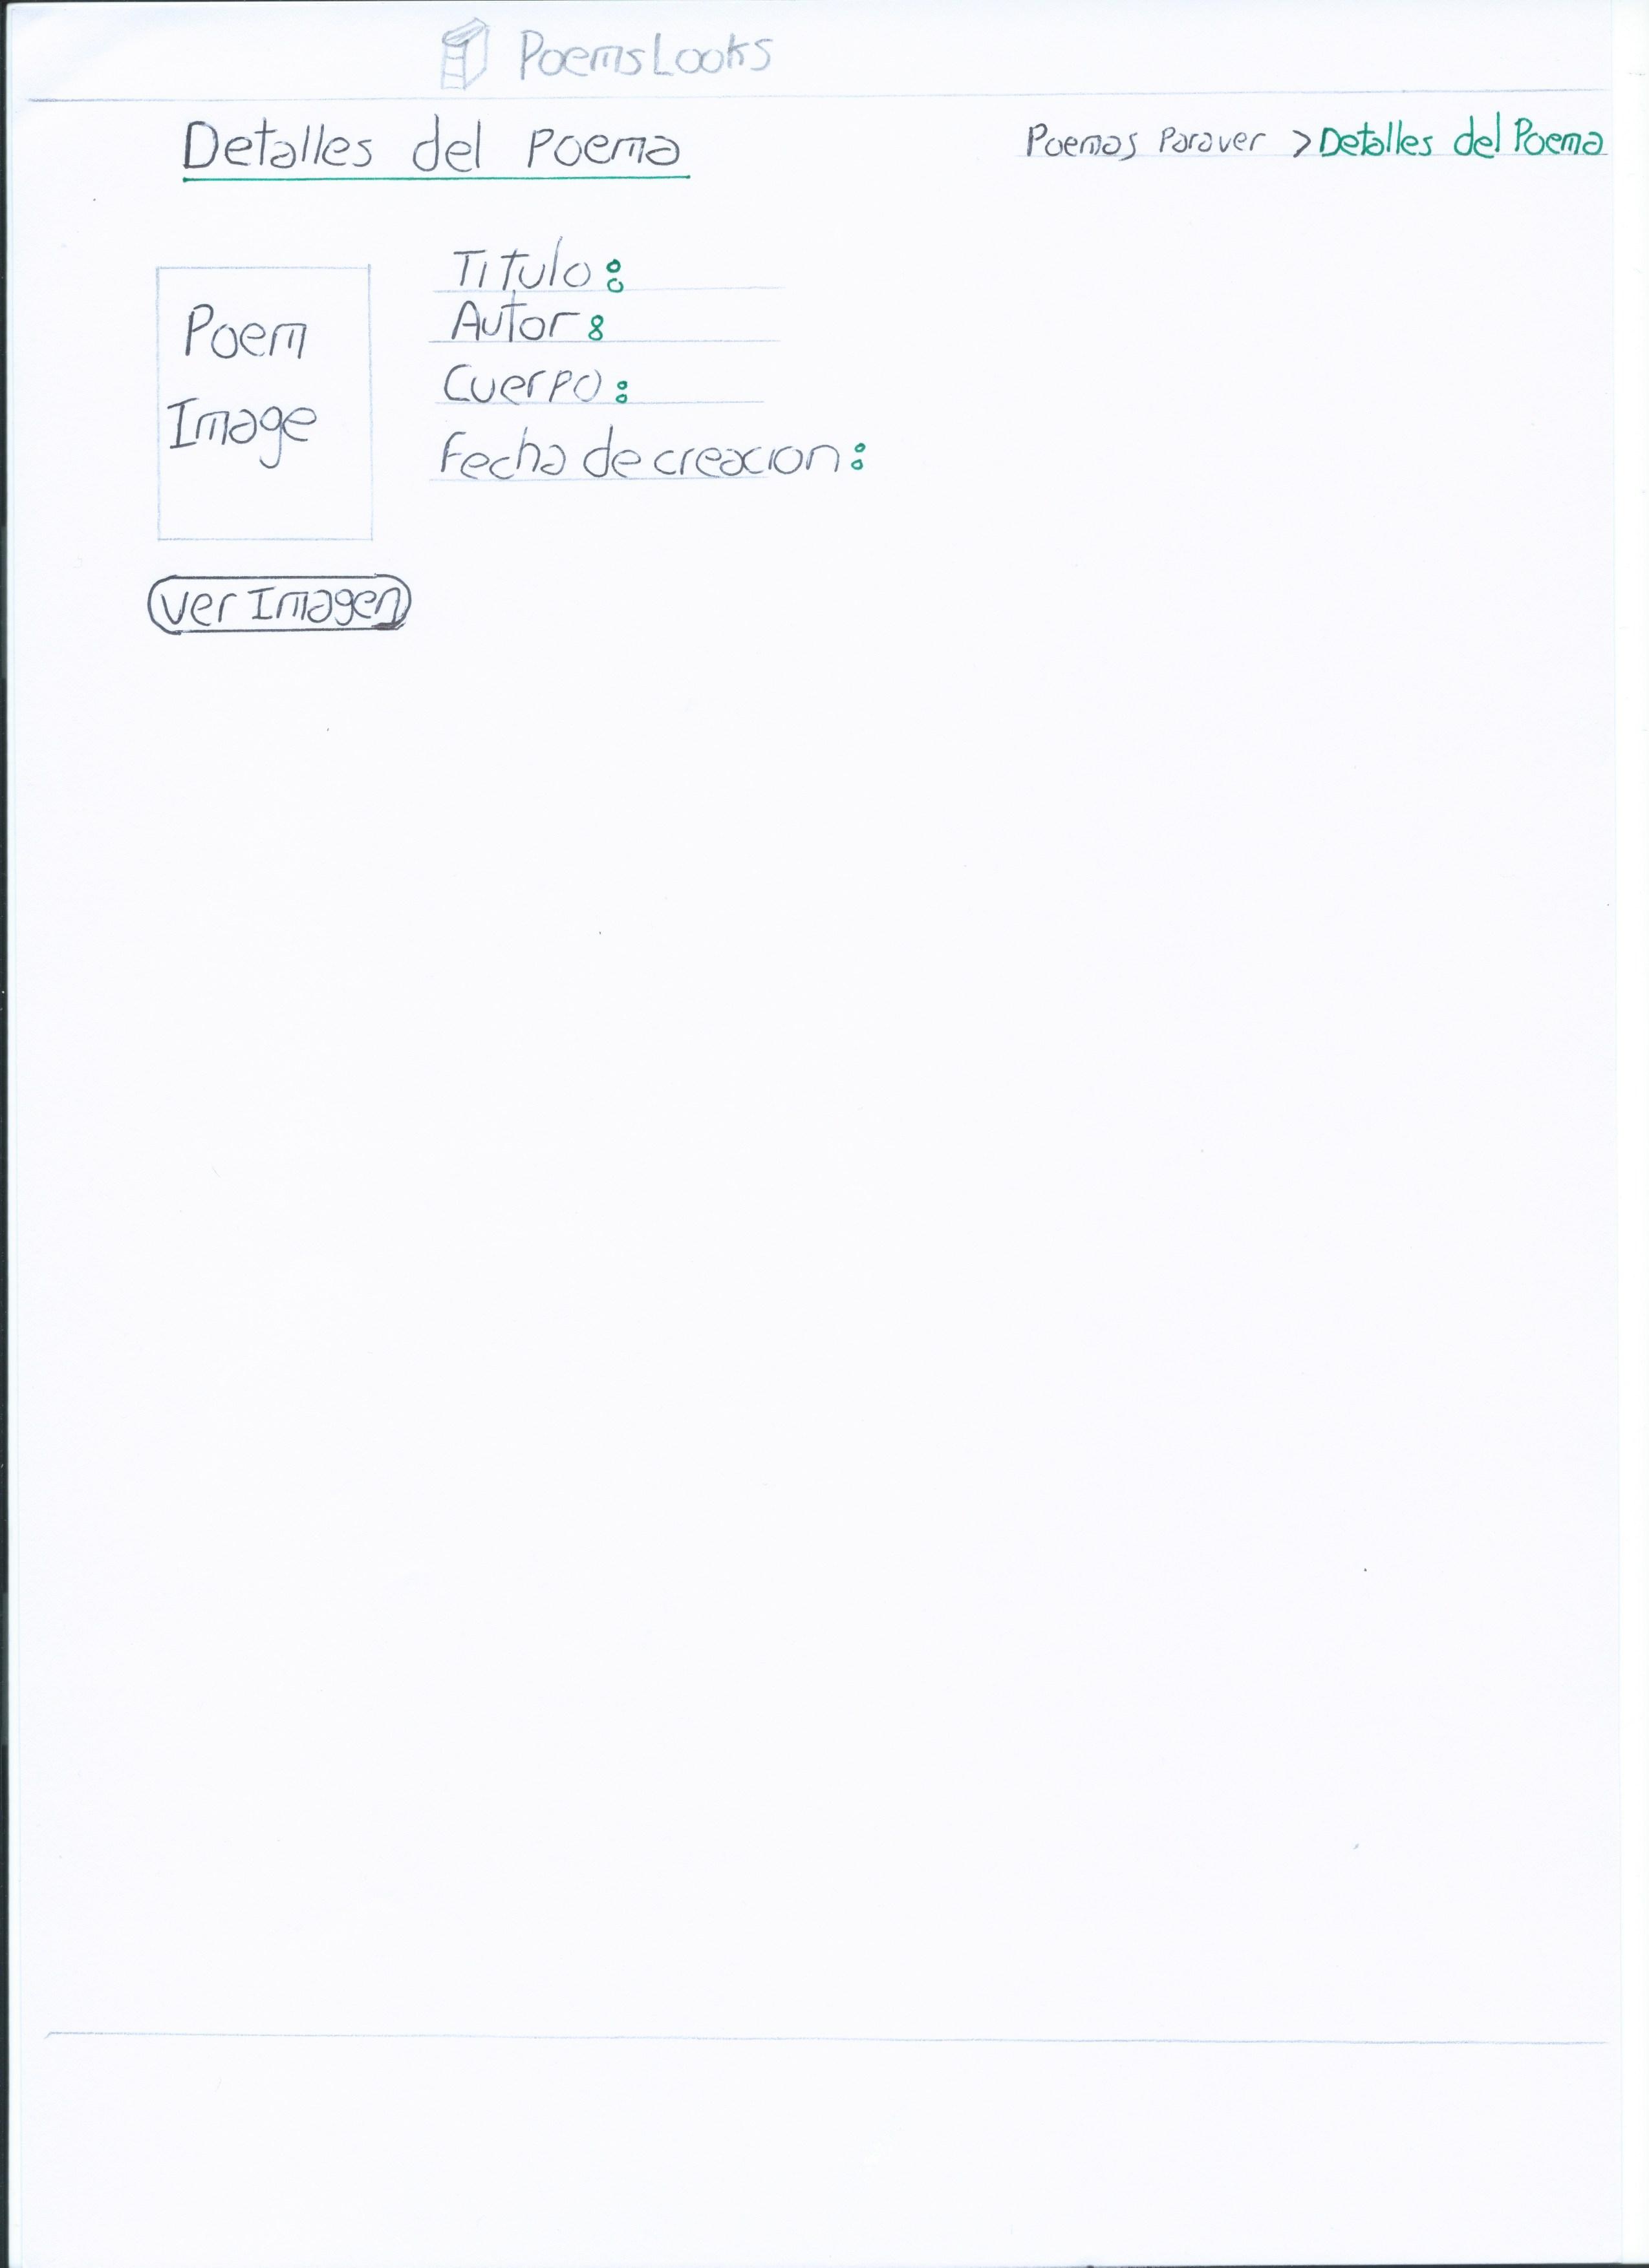 PoemsLooks
Detalles del Poema
Poemas Para ver > Detalles del Poema
Poem
Image
Titulo:
Autor:
Cuerpo:
Fecha de creacion:
Ver Imagen